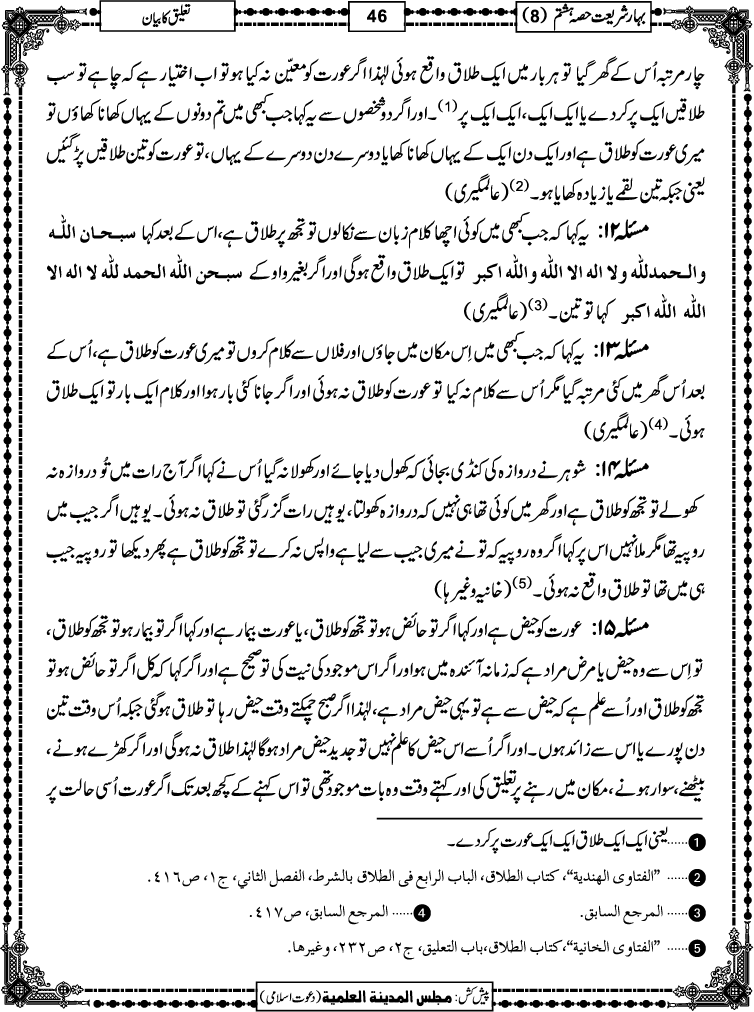 بہار شریعت حصہ ہشتم (8)
46
تعلیق کا بیان
چار مرتبہ اُس کے گھر گیا تو ہر بار میں ایک طلاق واقع ہوئی لہٰذا اگر عورت کو معیّن نہ کیا ہو تو اب اختیار ہے کہ چاہے تو سب
طلاقیں ایک پر کر دے یا ایک ایک، ایک ایک پر (1)۔ اور اگر دو شخصوں سے یہ کہا جب کبھی میں تم دونوں کے یہاں کھانا کھاؤں تو
میری عورت کو طلاق ہے اور ایک دن ایک کے یہاں کھانا کھایا دوسرے دن دوسرے کے یہاں، تو عورت کو تین طلاقیں پڑ گئیں
یعنی جبکہ تین لقمے یا زیادہ کھایا ہو۔ (2) (عالمگیری)
مسئلہ ۱۲: یہ کہا کہ جب کبھی میں کوئی اچھا کلام زبان سے نکالوں تو تجھ پر طلاق ہے، اس کے بعد کہا سبحان اللہ
والحمدللہ ولا الہ الا اللہ واللہ اکبر تو ایک طلاق واقع ہوگی اور اگر بغیر واو کے سبحن اللہ الحمد للہ لا الہ الا
اللہ اللہ اکبر کہا تو تین۔ (3) (عالمگیری)
مسئلہ ۱۳: یہ کہا کہ جب کبھی میں اِس مکان میں جاؤں اور فلاں سے کلام کروں تو میری عورت کو طلاق ہے، اُس کے
بعد اُس گھر میں کئی مرتبہ گیا مگر اُس سے کلام نہ کیا تو عورت کو طلاق نہ ہوئی اور اگر جانا کئی بار ہوا اور کلام ایک بار تو ایک طلاق
ہوئی۔ (4) (عالمگیری)
مسئلہ ۱۴: شوہر نے دروازہ کی کنڈی بجائی کہ کھول دیا جائے اور کھولا نہ گیا اُس نے کہا اگر آج رات میں تُو دروازہ نہ
کھولے تو تجھ کو طلاق ہے اور گھر میں کوئی تھا ہی نہیں کہ دروازہ کھولتا، یوہیں رات گزر گئی تو طلاق نہ ہوئی۔ یوہیں اگر جیب میں
روپیہ تھا مگر ملا نہیں اس پر کہا اگر وہ روپیہ کہ تو نے میری جیب سے لیا ہے واپس نہ کرے تو تجھ کو طلاق ہے پھر دیکھا تو روپیہ جیب
ہی میں تھا تو طلاق واقع نہ ہوئی۔ (5) (خانیہ وغیرہا)
مسئلہ ۱۵: عورت کو حیض ہے اور کہا اگر تو حائض ہو تو تجھ کو طلاق، یا عورت بیمار ہے اور کہا اگر تو بیمار ہو تو تجھ کو طلاق،
تو اِس سے وہ حیض یا مرض مراد ہے کہ زمانہ آئندہ میں ہو اور اگر اس موجود کی نیت کی تو صحیح ہے اور اگر کہا کہ کل اگر تو حائض ہو تو
تجھ کو طلاق اور اُسے علم ہے کہ حیض سے ہے تو یہی حیض مراد ہے، لہٰذا اگر صبح چمکتے وقت حیض رہا تو طلاق ہوگئی جبکہ اُس وقت تین
دن پورے یا اس سے زائد ہوں۔ اور اگر اُسے اس حیض کا علم نہیں تو جدید حیض مراد ہوگا لہٰذا طلاق نہ ہوگی اور اگر کھڑے ہونے،
بیٹھنے، سوار ہونے، مکان میں رہنے پر تعلیق کی اور کہتے وقت وہ بات موجود تھی تو اس کہنے کے کچھ بعد تک اگر عورت اُسی حالت پر
1 ...... یعنی ایک ایک طلاق ایک ایک عورت پر کر دے۔
2 ...... ”الفتاوی الهندية“، کتاب الطلاق، الباب الرابع فی الطلاق بالشرط، الفصل الثاني، ج۱، ص ٤١٦.
3 ...... المرجع السابق. 4 ...... المرجع السابق، ص ٤١٧.
5 ...... ”الفتاوی الخانية“، کتاب الطلاق، باب التعليق، ج۲، ص ۲۳۲، وغیرها.
پیش کش: مجلس المدينة العلمية (دعوت اسلامی)